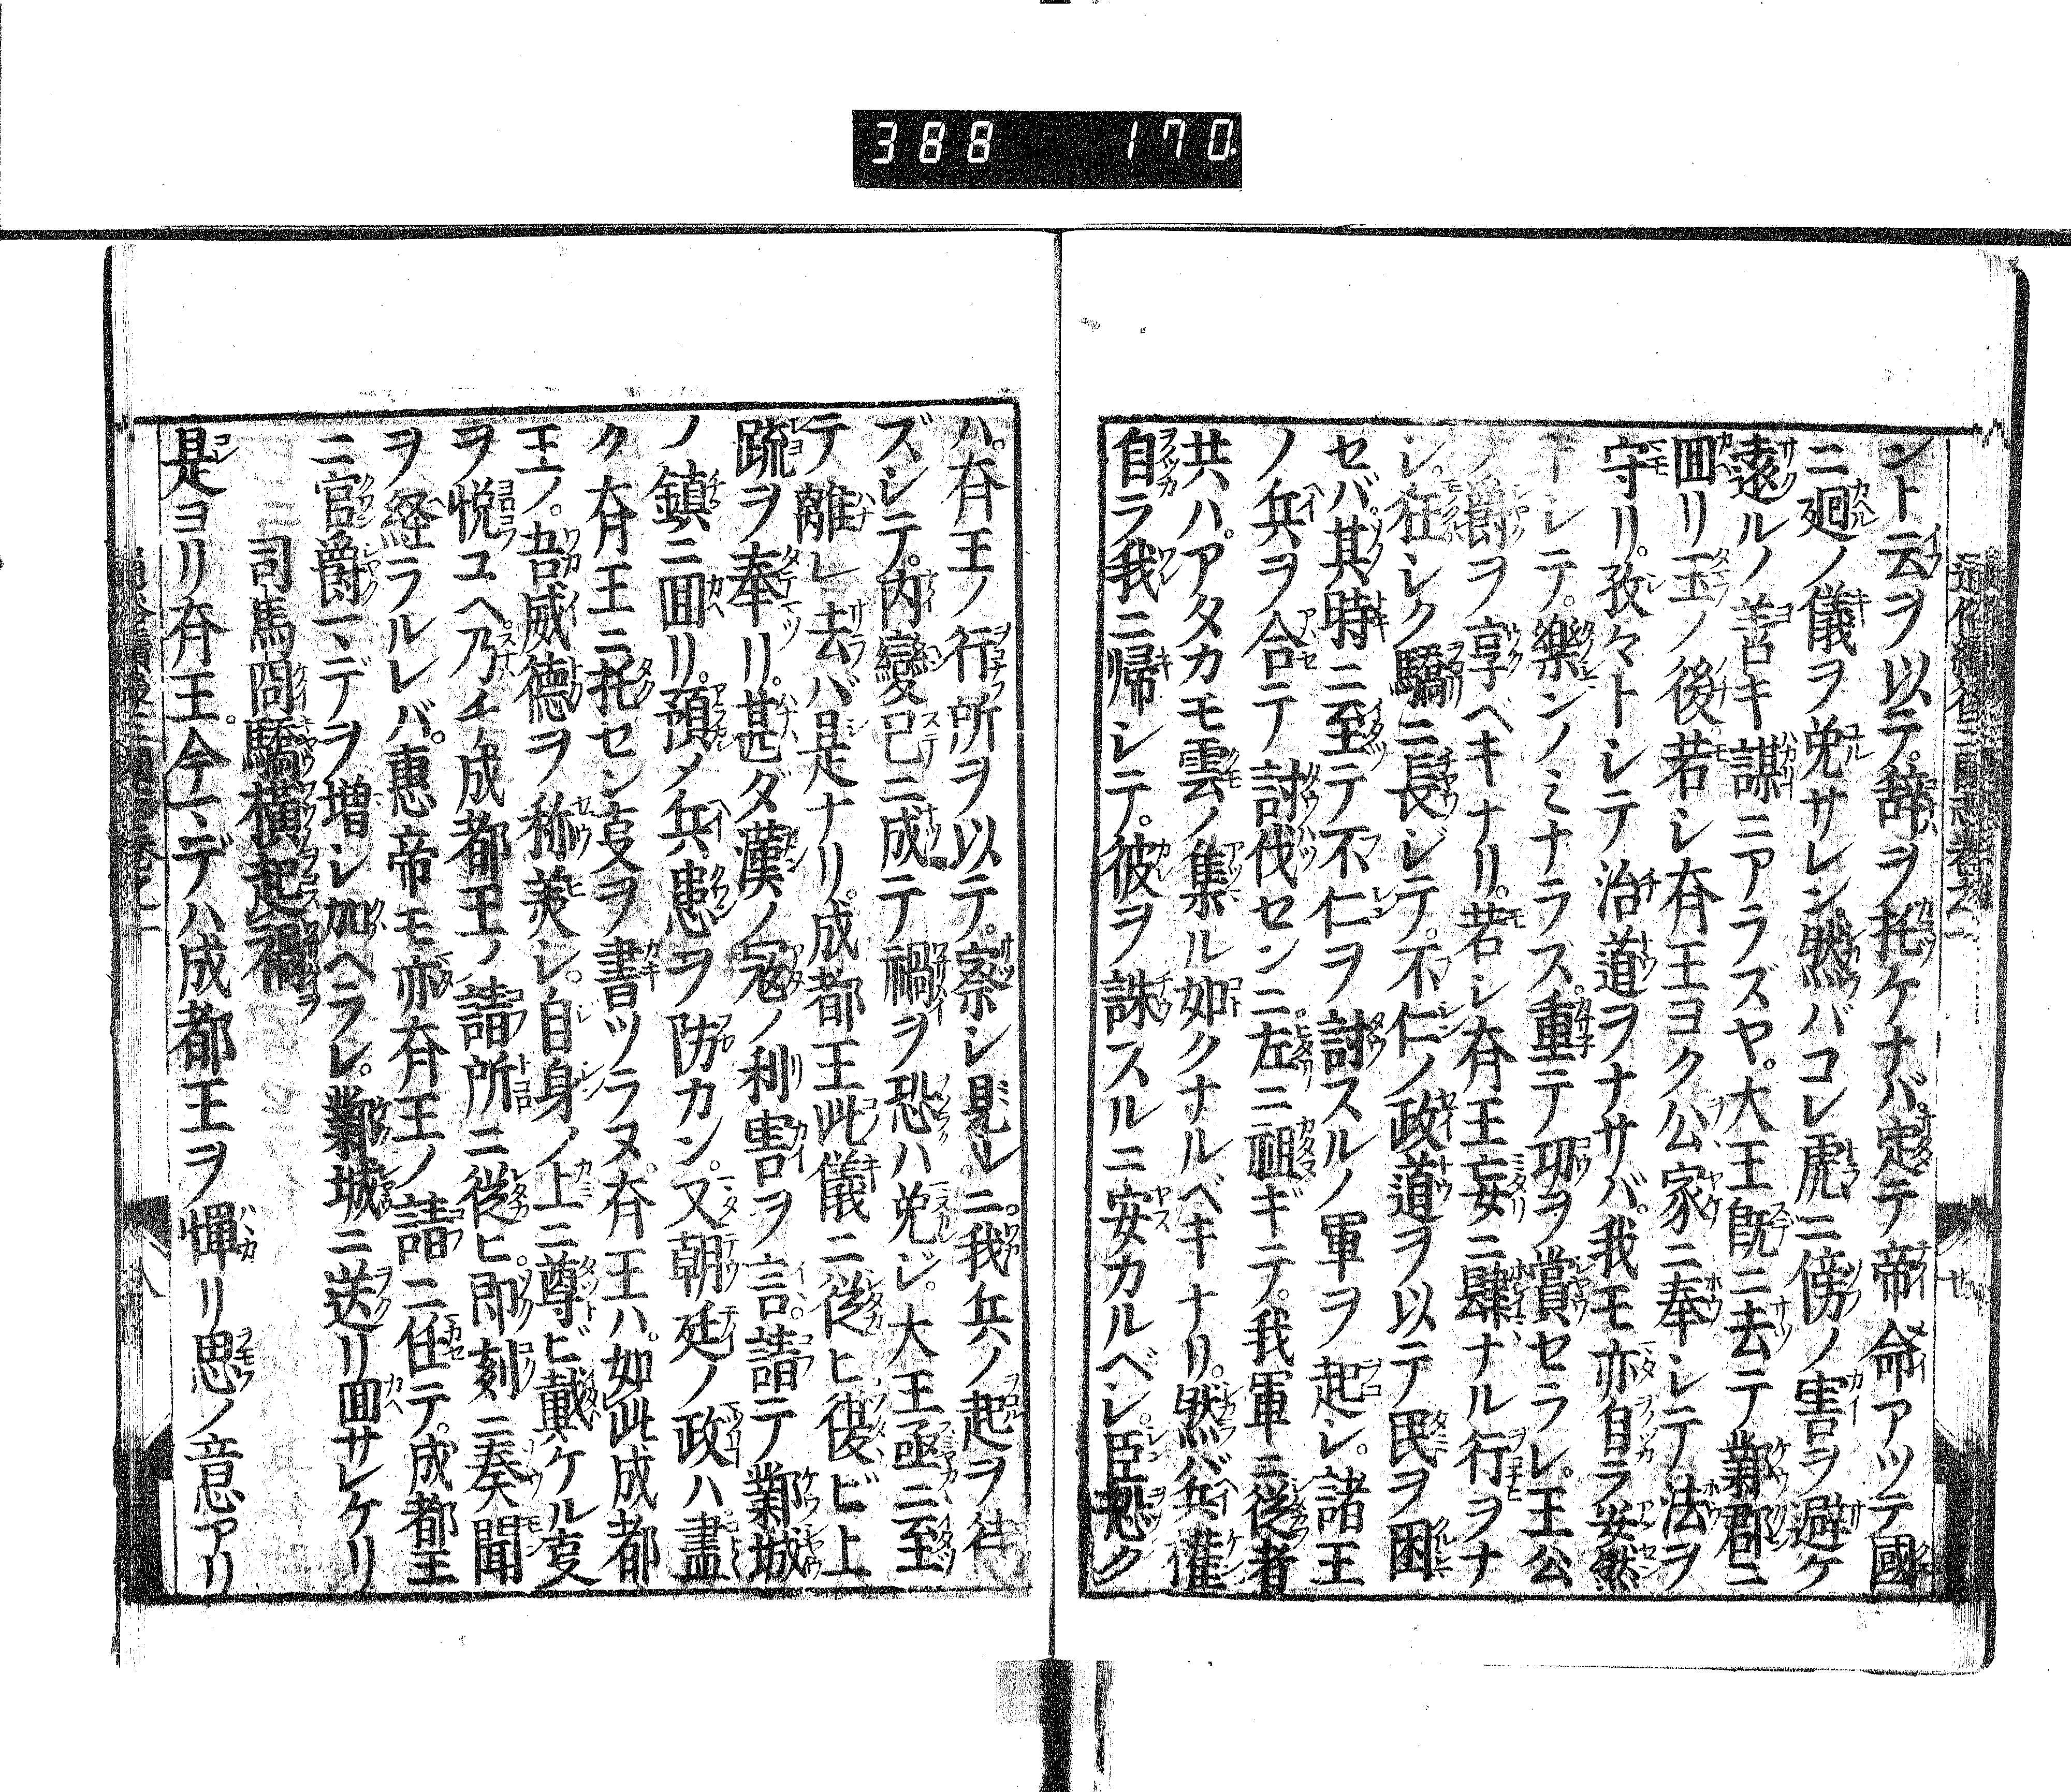 388 170
ント云ヲ以テ。辞ヲ托ケナバ。定テ帝命アツテ國
ニ廻ノ儀ヲ免サレン。然バコレ虎ニ傍ノ害ヲ避ケ
遠ルノ善キ謀ニアラズヤ。大王既ニ去テ鄴郡ニ
囬リ玉ノ後若シ斉王ヨク公家ニ奉シテ法ヲ
守リ。孜々トシテ治道ヲナサバ。我モ亦自ラ安然
トレテ。樂ンノミナラズ。重テ功ヲ賞セラレ。王公
ノ爵ヲ享ベキナリ。若シ斉王妄ニ肆ナル行ヲナ
シ。狂シク驕ニ長ジテ。不仁ノ政道ヲ以テ民ヲ困
セバ。其時ニ至テ不仁ヲ討スルノ軍ヲ起シ。諸王
ノ兵ヲ合テ討伐センニ。左ニ袒ギテ。我軍ニ從者
共ハ。アタカモ雲ノ集ル如クナルベキナリ。然バ兵權
自ラ我ニ帰シテ。彼ヲ誅スルニ安カルベシ。臣愁ク
ハ。斉王ノ行所ヲ以テ。察シ見レニ。我兵ノ起ヲ待
ズシテ。内變已ニ成テ禍ヲ恐ハ免ジ。大王亟ニ至
テ離レ去バ是ナリ。成都王此儀ニ從ヒ復ビ上
疏ヲ奉リ。甚ダ漢ノ寇ノ利害ヲ言。請テ鄴城
ノ鎮ニ囬リ。預メ兵患ヲ防カン。又朝廷ノ政ハ盡
ク斉王ニ托セン支ヲ書ツラヌ。斉王ハ。如此成都
王ノ。吾威德ヲ称羙シ。自身ノ上ニ尊ビ戴ケル支
ヲ悦ユヘ。乃チ成都王ノ請所ニ從ヒ。即刻ニ奏聞
ヲ経ラルレバ。惠帝モ亦斉王ノ請ニ任テ。成都王
ニ官爵マデヲ増シ加ヘラレ。鄴城ニ送リ囬サレケリ
司馬冏驕横起禍
是ヨリ斉王。今マデハ成都王ヲ憚リ思ノ意アリ